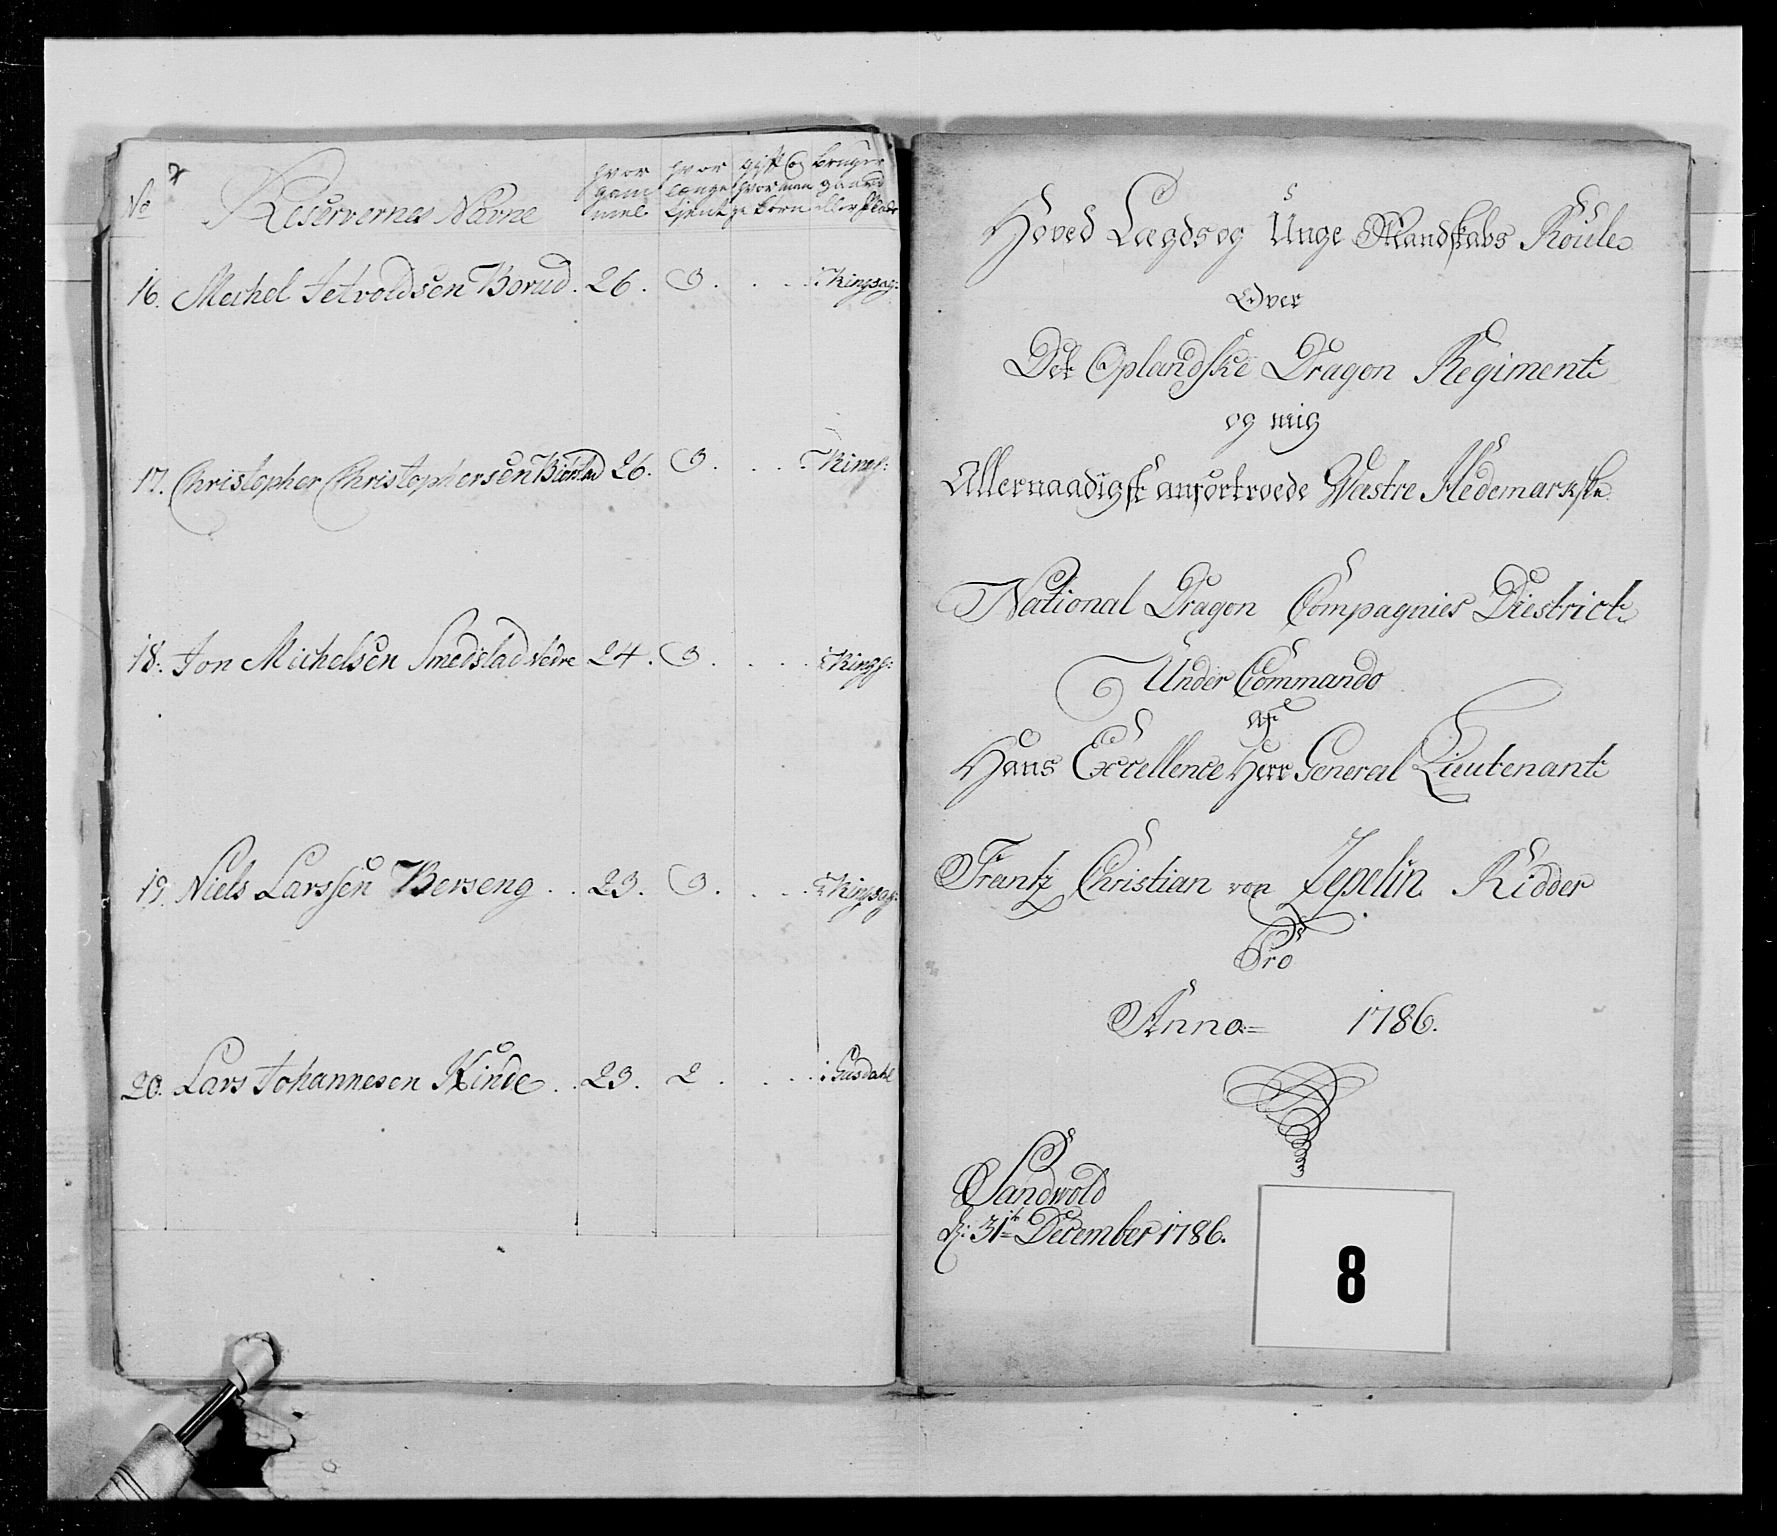 No
Reservernes Navne
hvor gammel
hvor længe tjent
gift og hvor mange børn
bruger gaard eller plads
16. Michel Setvoldsen Borud. 26. 3. . . i Ringsag:
17. Christopher Christophersen Bierstad 26. 3. . . i Rings:
18. Jon Michelsen Smedstad Nedre 24. 3. . . . i Rings:
19. Niels Larssen Berseng . . 23. 3. . . . i Ringsag:
20. Lars Johannesen Kinde . . 23. 2 . . . . i Gusdahl
Hoved Lægds og Unge Mandskabs Roule
Over
Det Oplandske Dragon Regiment
og mig
Allernaadigst anfortroede Wæstre Hedemarkske
National Dragon Compagnies Diestrict
Under Commando
af
Hans Excellence Herr General Lieutenant
Frantz Christian von Zepelin Ridder
Pro
Anno= 1786.
Sandvold
d: 31te December 1786.
8